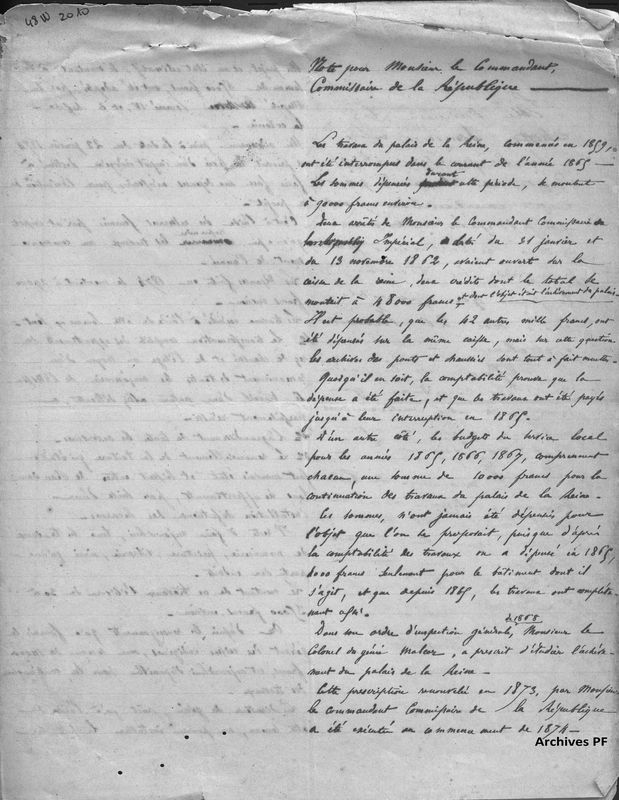 48W 2010
Note pour Monsieur le Commandant,
Commissaire de la République
Les travaux du palais de la Reine, commencés en 1859,
ont été interrompus dans le courant de l'année 1865
Les sommes dépensées durant cette période, se montent
à 90000 francs environ.
Deux arrêtés de Monsieur le Commandant Commissaire
Impérial, du 31 janvier et
du 13 novembre 1862, avaient ouvert sur la
caisse de la reine, deux crédits dont le total se
montait à 48000 francs et dont l'objet était l'achèvement du palais.
Il est probable, que les 42 autres mille francs, ont
été dépensés sur la même caisse, mais sur cette question
les archives des ponts et chaussées sont tout à fait muettes.
Quoiqu'il en soit, la comptabilité prouve que la
dépense a été faite, et que les travaux ont été payés
jusqu'à leur interruption en 1865.
D'un autre côté, les budgets du service local
pour les années 1865, 1866, 1867, comprennent
chacun, une somme de 10000 francs pour la
continuation des travaux du palais de la Reine.
Ces sommes, n'ont jamais été dépensées pour
l'objet que l'on se proposait, puisque d'après
la comptabilité des travaux on a dépensé en 1865,
8000 francs seulement pour le bâtiment dont il
s'agit, et que depuis 1865, les travaux ont complète-
ment cessé.
Dans son ordre d'inspection générale, de 1868 Monsieur le
Colonel du génie, a prescrit d'étudier l'achève-
ment du palais de la Reine.
Cette prescription renouvelée en 1873, par Monsieur
le commandant Commissaire de la République
a été exécutée au commencement de 1874
Archives PF